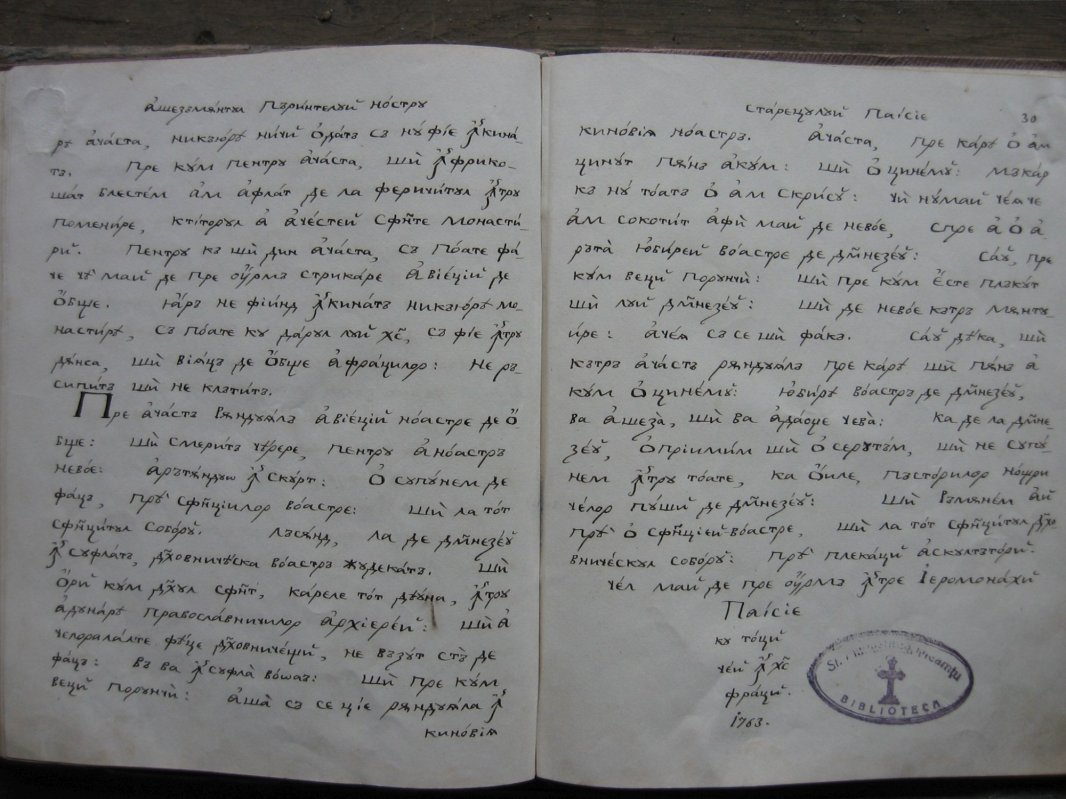 Ашезѣмѫнтул Пъринтелуй Ностру
рѣ ачаста, никэюрѣ ничй ѻдатъ съ ну фїе ꙟкина-
тъ. Пре кум пентру ачаста, шй ꙟфрико-
шат блестем ам афлат де ла феричитул ꙟтру
поменире, ктіторул а ачестей сфн҃те монасти-
рй. Пентру къ шй дин ачаста, съ поате фа-
че чѣ май де пре оурмъ стрикаре авїецій де
ѻбще. Іаръ не фїинд ꙟкинатъ никэюрѣ мо-
настирѣ, съ поате ку дарул луй хс҃, съ фїе ꙟтру
дѫнса, шй вїаца де ѻбще афрацилор: не ръ-
сипитъ шй не клатитъ.
Пре ачастъ рѫндуалъ авїецїй ноастре де ѻ
бще: шй смеритъ чѣрере, пентру аноастръ
невое: арътѫндꙋѡ ꙟскурт: ѻ супунем де
фацъ, прѣ сфн҃ціилор воастре: шй ла тот
сфн҃цитул собору. Лъсѫнд, ла де дм҃незеу
ꙟсуфлатъ, дх҃овничѣска воастръ жудекатъ. Шй
ѻрй кум дх҃ул сфн҃т, кареле тот дѣуна, ꙟтру
адунарѣ православничилор архїерей: шй а
челоралалте фѣце дх҃овничещй, не възут стъ де
фацъ: въ ва ꙟсуфла вѡаъ: шй пре кум
вецй порунчй: аша съ се ціе рѫндуала ꙟ
киновїа
Старецулуй Паісіе 30
киновїа ноастръ. Ачаста, пре карѣ ѻ ам
цинут пѫнъ акум: шй ѻ цинему: мъкар
къ ну тоатъ ѻ ам скрису: чй нумай чея че
ам сокотит афй май де невое, спре а ѻ а-
ръта юбирей воастре де дм҃незеу: Сау, пре
кум вецй порунчй: шй пре кум есте плъкут
шй луй дм҃незеу: шй де невое кътръ мѫнту-
ире: ачея съ се шй факъ. Сау дѣка, шй
кътръ ачастъ рѫндуалъ пре карѣ шй пѫнъ а
кум ѻ цинему: юбирѣ воастръ де дм҃незеу,
ва ашеза, шй ва адаоще чева: ка де ла дм҃не-
зеу, ѻпріимим шй ѻ серутъм, шй не супу-
нем ꙟтру тоате, ка ѻиле, пъсторилор нощри
челор пушй де дм҃незеу: шй рэмѫнем ай
прѣ ѻ сфн҃цїей воастре, шй ла тот сфн҃цитул дх҃о-
вническул собору: прѣ плекацй аскултъторй.
Чел май де пре оурмъ ꙟтре Іеромонахй
Паісіе
ку тоцй
чей ꙟ хс҃
фрацй.
1763.
BIBLIOTECA